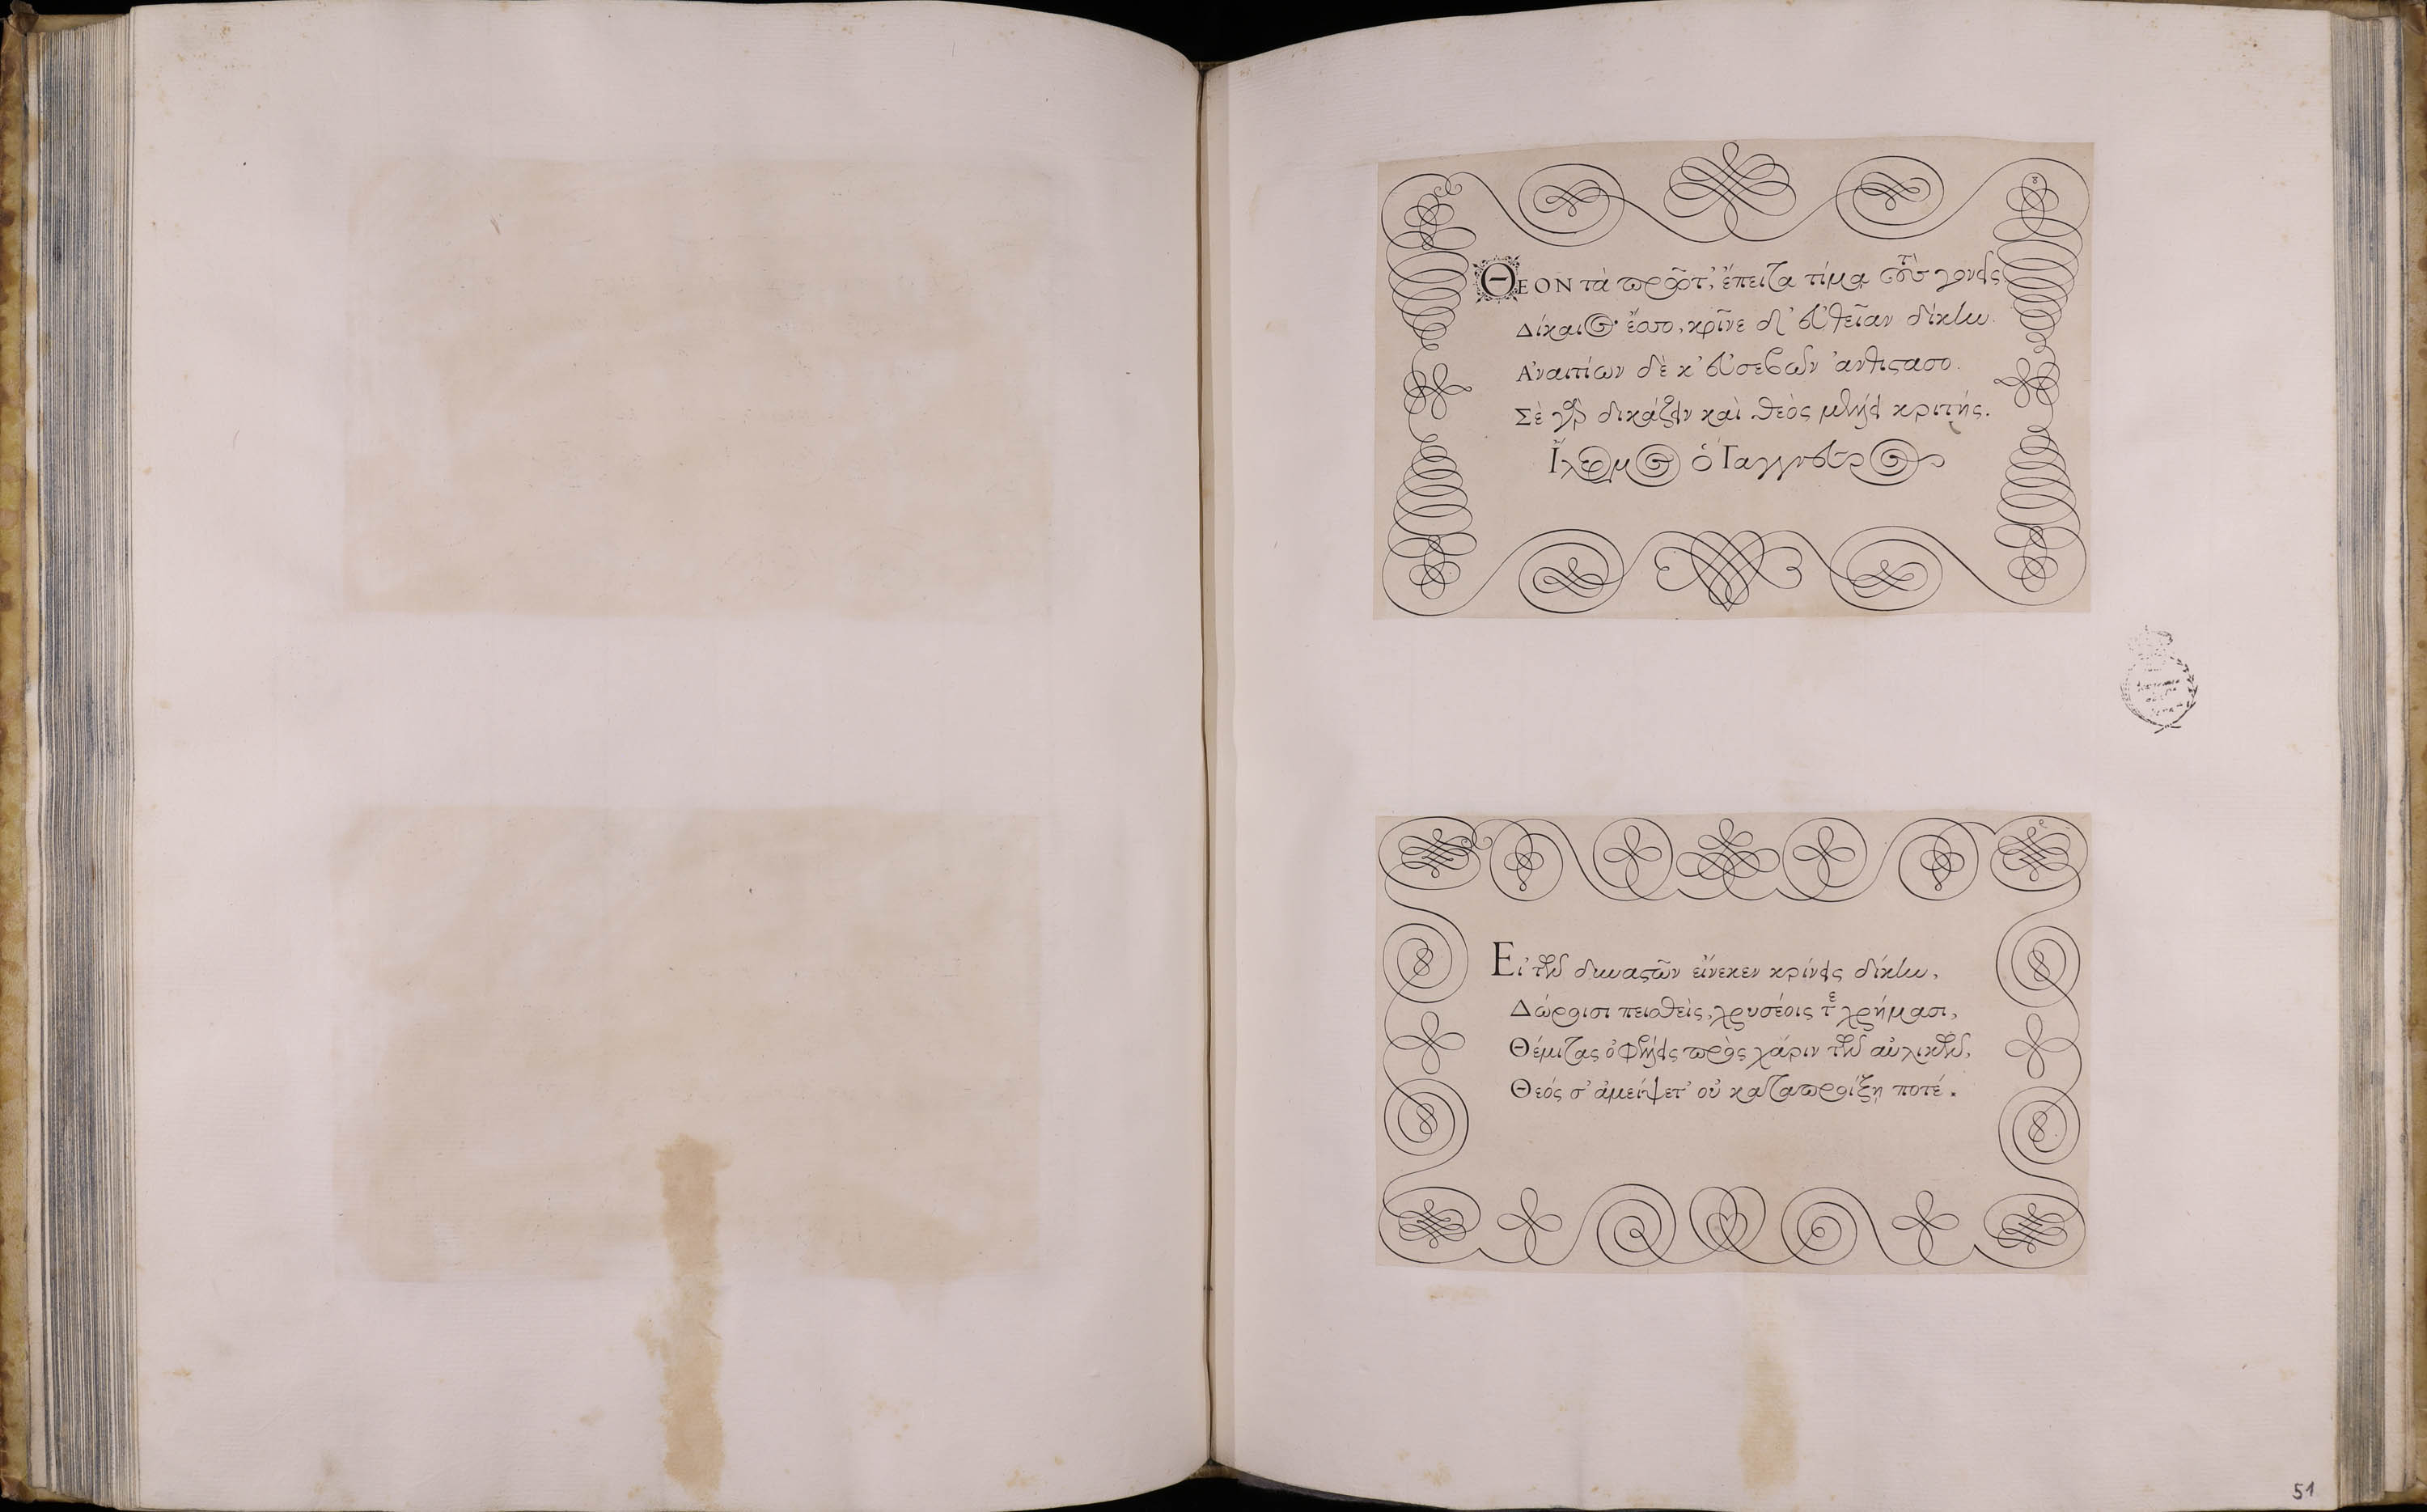 ΘΕΟΝ τὰ πρῶτ', ἔπειτα τίμα σοὺς γονεῖς
Δίκαιος ἔσο, κρῖνε δ' εὐθεῖαν δίκην.
Ἀναιτίων δὲ κ' εὐσεβῶν ἀνθίστασο.
Σὲ γὰρ δικάζειν καὶ θεὸς κριτής.
ὁ
Εἰ τῶν δυναστῶν εἵνεκεν κρίνεις δίκην,
Δώροισι πεισθεὶς, χρυσέοις τε χρήμασι,
Θέμιτας πρὸς χάριν τῶν αὐλικῶν,
Θεός σ' ἀμείψετ' οὐ καταπροίξῃ ποτέ.
51